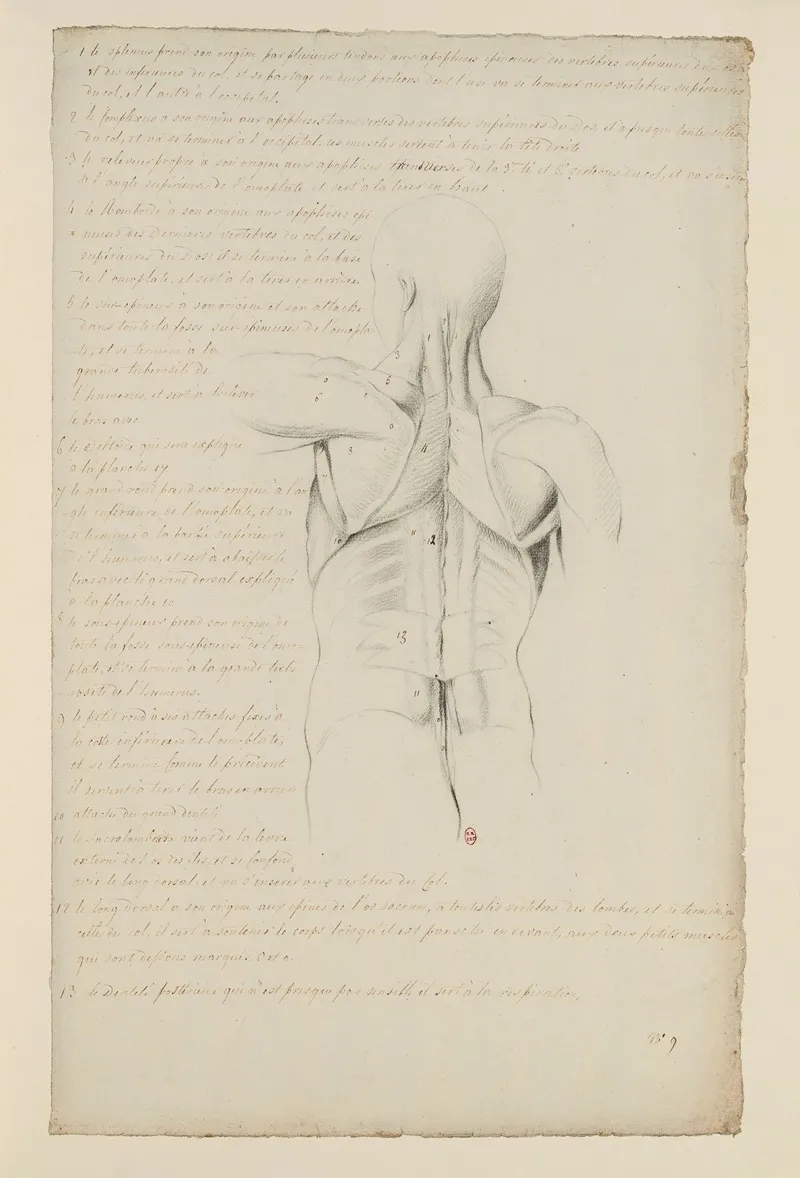 1 le splenius prend son origine par plusieurs tendons aux apophises epineuses des vertebres superieures du dos
et des inferieures du col, et se partage en deux portions dont l'une va se terminer aux vertebres superieures
du col, et l'autre à l'occipital.
2 le Complexus a son origine aux apophises transverses des vertebres superieures du Dos, et a presque toutes celles
du col, et va se terminer à l'occipital, ces muscles servent à tenir la tête droite
3 le releveur propre a son origine aux apophises transverses de la 3e 4e et 5e vertebres du col, et va s'inserer
a l'angle superieure de l'omoplate et sert à la tirer en haut
4 le Romboïde à son origine aux apophises epi
neuses des Dernieres vertebres du col, et des
superieures du Dos; il se termine à la base
de l'omoplate, et sert à la tirer en arriere.
5 le sur-epineux à son origine et son attache
dans toute la fosse sur-epineuse de l'omopla
te, et se termine à la
grande tuberosité de
l'humerus, et sert à soulever
le bras avec
6 le Deltoïde qui sera expliqué
a la planche 17
7 le grand rond prend son origine à l'an
gle inferieure de l'omoplate, et va
se terminer à la partie superieure
de l'humerus, et sert à abaisser le
bras avec le grand dorsal expliqué
a la planche 10
8 le sous-epineux prend son origine de
toute la fosse sous-epineuse de l'omo-
plate, et se termine à la grande tube-
rosité de l'humerus.
9 le petit rond a ses attaches fixes à
la coste inferieure de l'omoplate,
et se termine comme le précédent
il servent à tirer le bras en arriere
10 attache du grand dentelé
11 le sacrolombaire vient de la levre
externe de l'os des iles, et se confond
avec le long dorsal, et va s'inserer aux vertebres du Col.
12 le long dorsal a son origine aux epines de l'os sacrum, a toutes les vertebres des lombes, et se termine a
celles du col, il sert à soutenir le corps lorsqu'il est panché en devant, aux deux petits muscles
qui sont dessous marqués O et o.
13 le Dentelé posterieur qui n'est presque pas sensible, il sert à la respiration,
3
1
2
5
9
6
6
8
4
7
10
11
12
13
11
N° 9